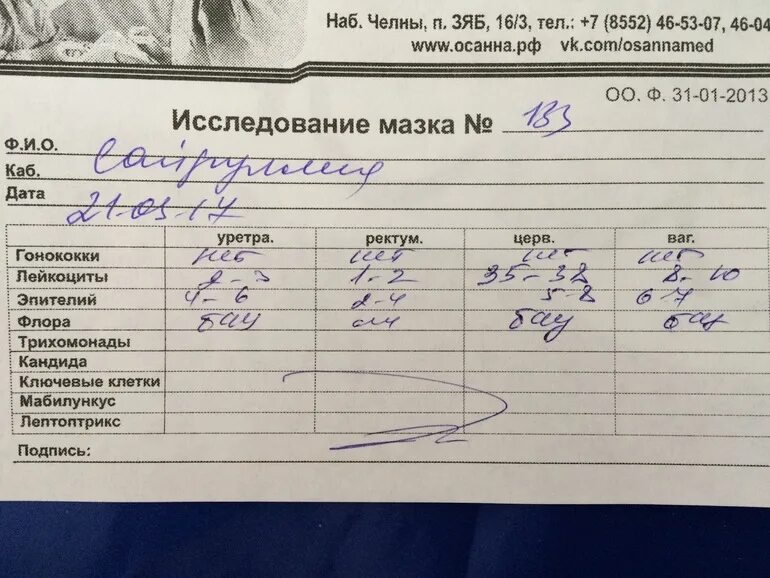 Наб. Челны, п. ЗЯБ, 16/3, тел.: +7 (8552) 46-53-07, 46-04
www.осанна.рф vk.com/osannamed
ОО. Ф. 31-01-2013
Исследование мазка № 133
Ф.И.О.
Каб.
Дата 21-03-17
уретра. ректум. церв. ваг.
Гонококки нет нет нет нет
Лейкоциты 2-3 1-2 35-38 8-10
Эпителий 4-6 2-4 5-8 6-7
Флора бац см бац бац
Трихомонады
Кандида
Ключевые клетки
Мабилункус
Лептоптрикс
Подпись: